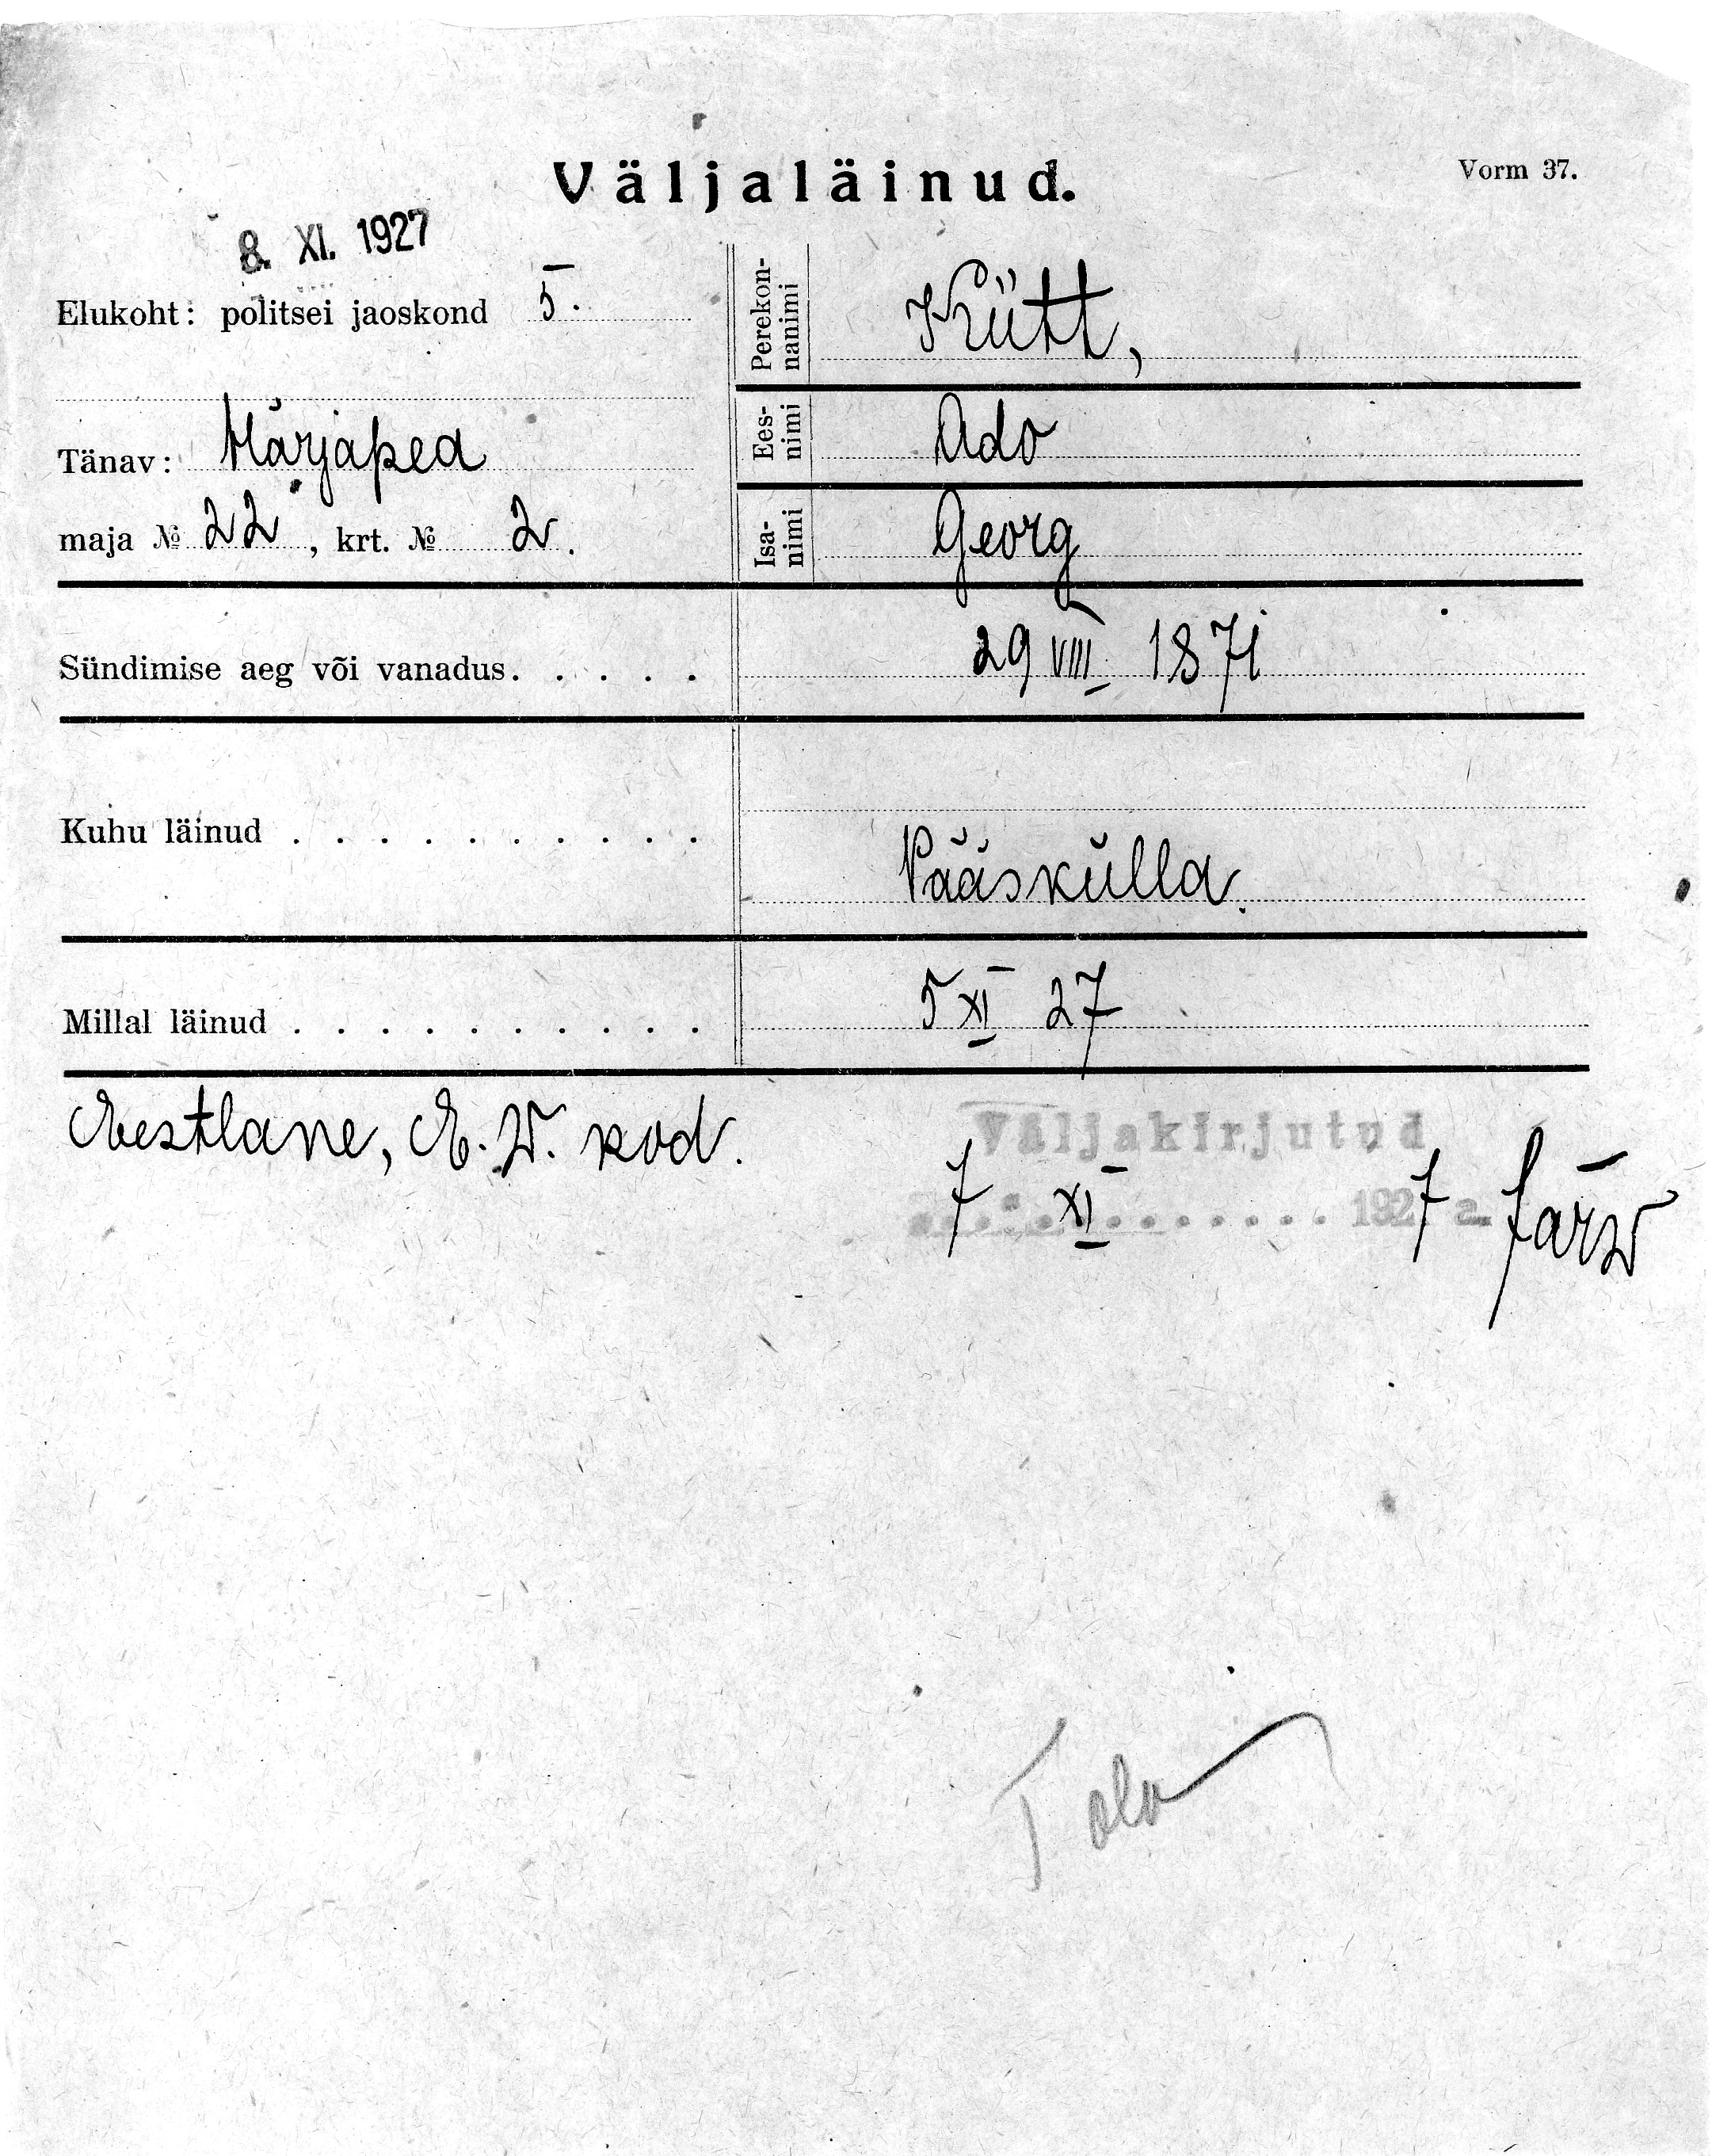 Väljaläinud.
Vorm 37.
8. XI. 1927
Elukoht: politsei jaoskond 5.
Tänav: Härjapea
maja № 22, krt. № 2.
Perekon-
nanimi
Kütt,
Ees-
nimi
Ado
Isa-
nimi
Georg
Sündimise aeg või vanadus. . . . . 29 VIII 1871
Kuhu läinud . . . . . . . . . . Pääskülla.
Millal läinud . . . . . . . . . . 5 XI 27
Eestlane, E. W. kod.
Väljakirjutud
7 XI 1927 a.